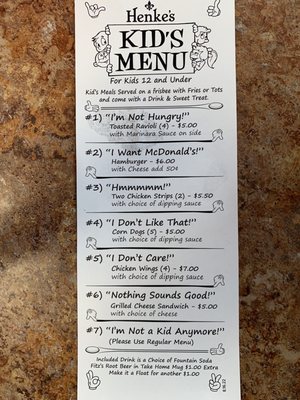 Henke's
KID'S
MENU
For Kids 12 and Under
Kid's Meals Served on a frisbee with Fries or Tots
and come with a Drink & Sweet Treat.
#1) "I'm Not Hungry!"
Toasted Ravioli (4) - $5.00
with Marinara Sauce on side
#2) "I Want McDonald's!"
Hamburger - $6.00
with Cheese add 50¢
#3) "Hmmmmm!"
Two Chicken Strips (2) - $5.50
with choice of dipping sauce
#4) "I Don't Like That!"
Corn Dogs (5) - $5.00
with choice of dipping sauce
#5) "I Don't Care!"
Chicken Wings (4) - $7.00
with choice of dipping sauce
#6) "Nothing Sounds Good!"
Grilled Cheese Sandwich - $5.00
with choice of cheese
#7) "I'm Not a Kid Anymore!"
(Please Use Regular Menu)
Included Drink is a Choice of Fountain Soda
Fitz's Root Beer in Take Home Mug $1.00 Extra
Make it a Float for another $1.00